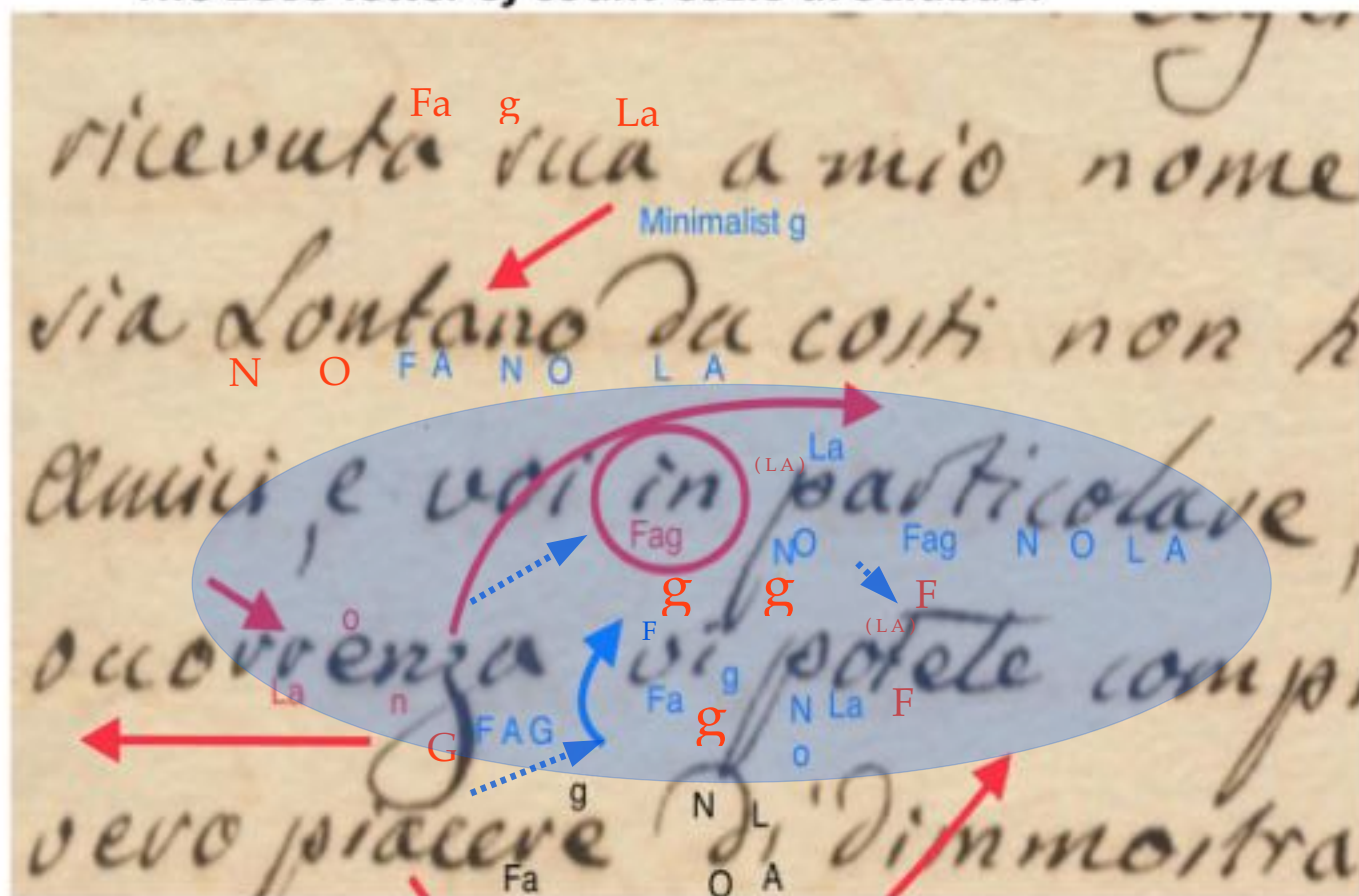 Fa g La
ricevuta sua a mio nome
Minimalist g
sia Lontano da costi non h
N O F A N O L A
La
(LA)
Amici, e voi in particolare,
Fag N O Fag N O L A
g g F
o F (LA)
occorrenza vi potete comp
La n Fa g N La F
G FAG g o
g N L
vero piacere di dimmostra
Fa O A